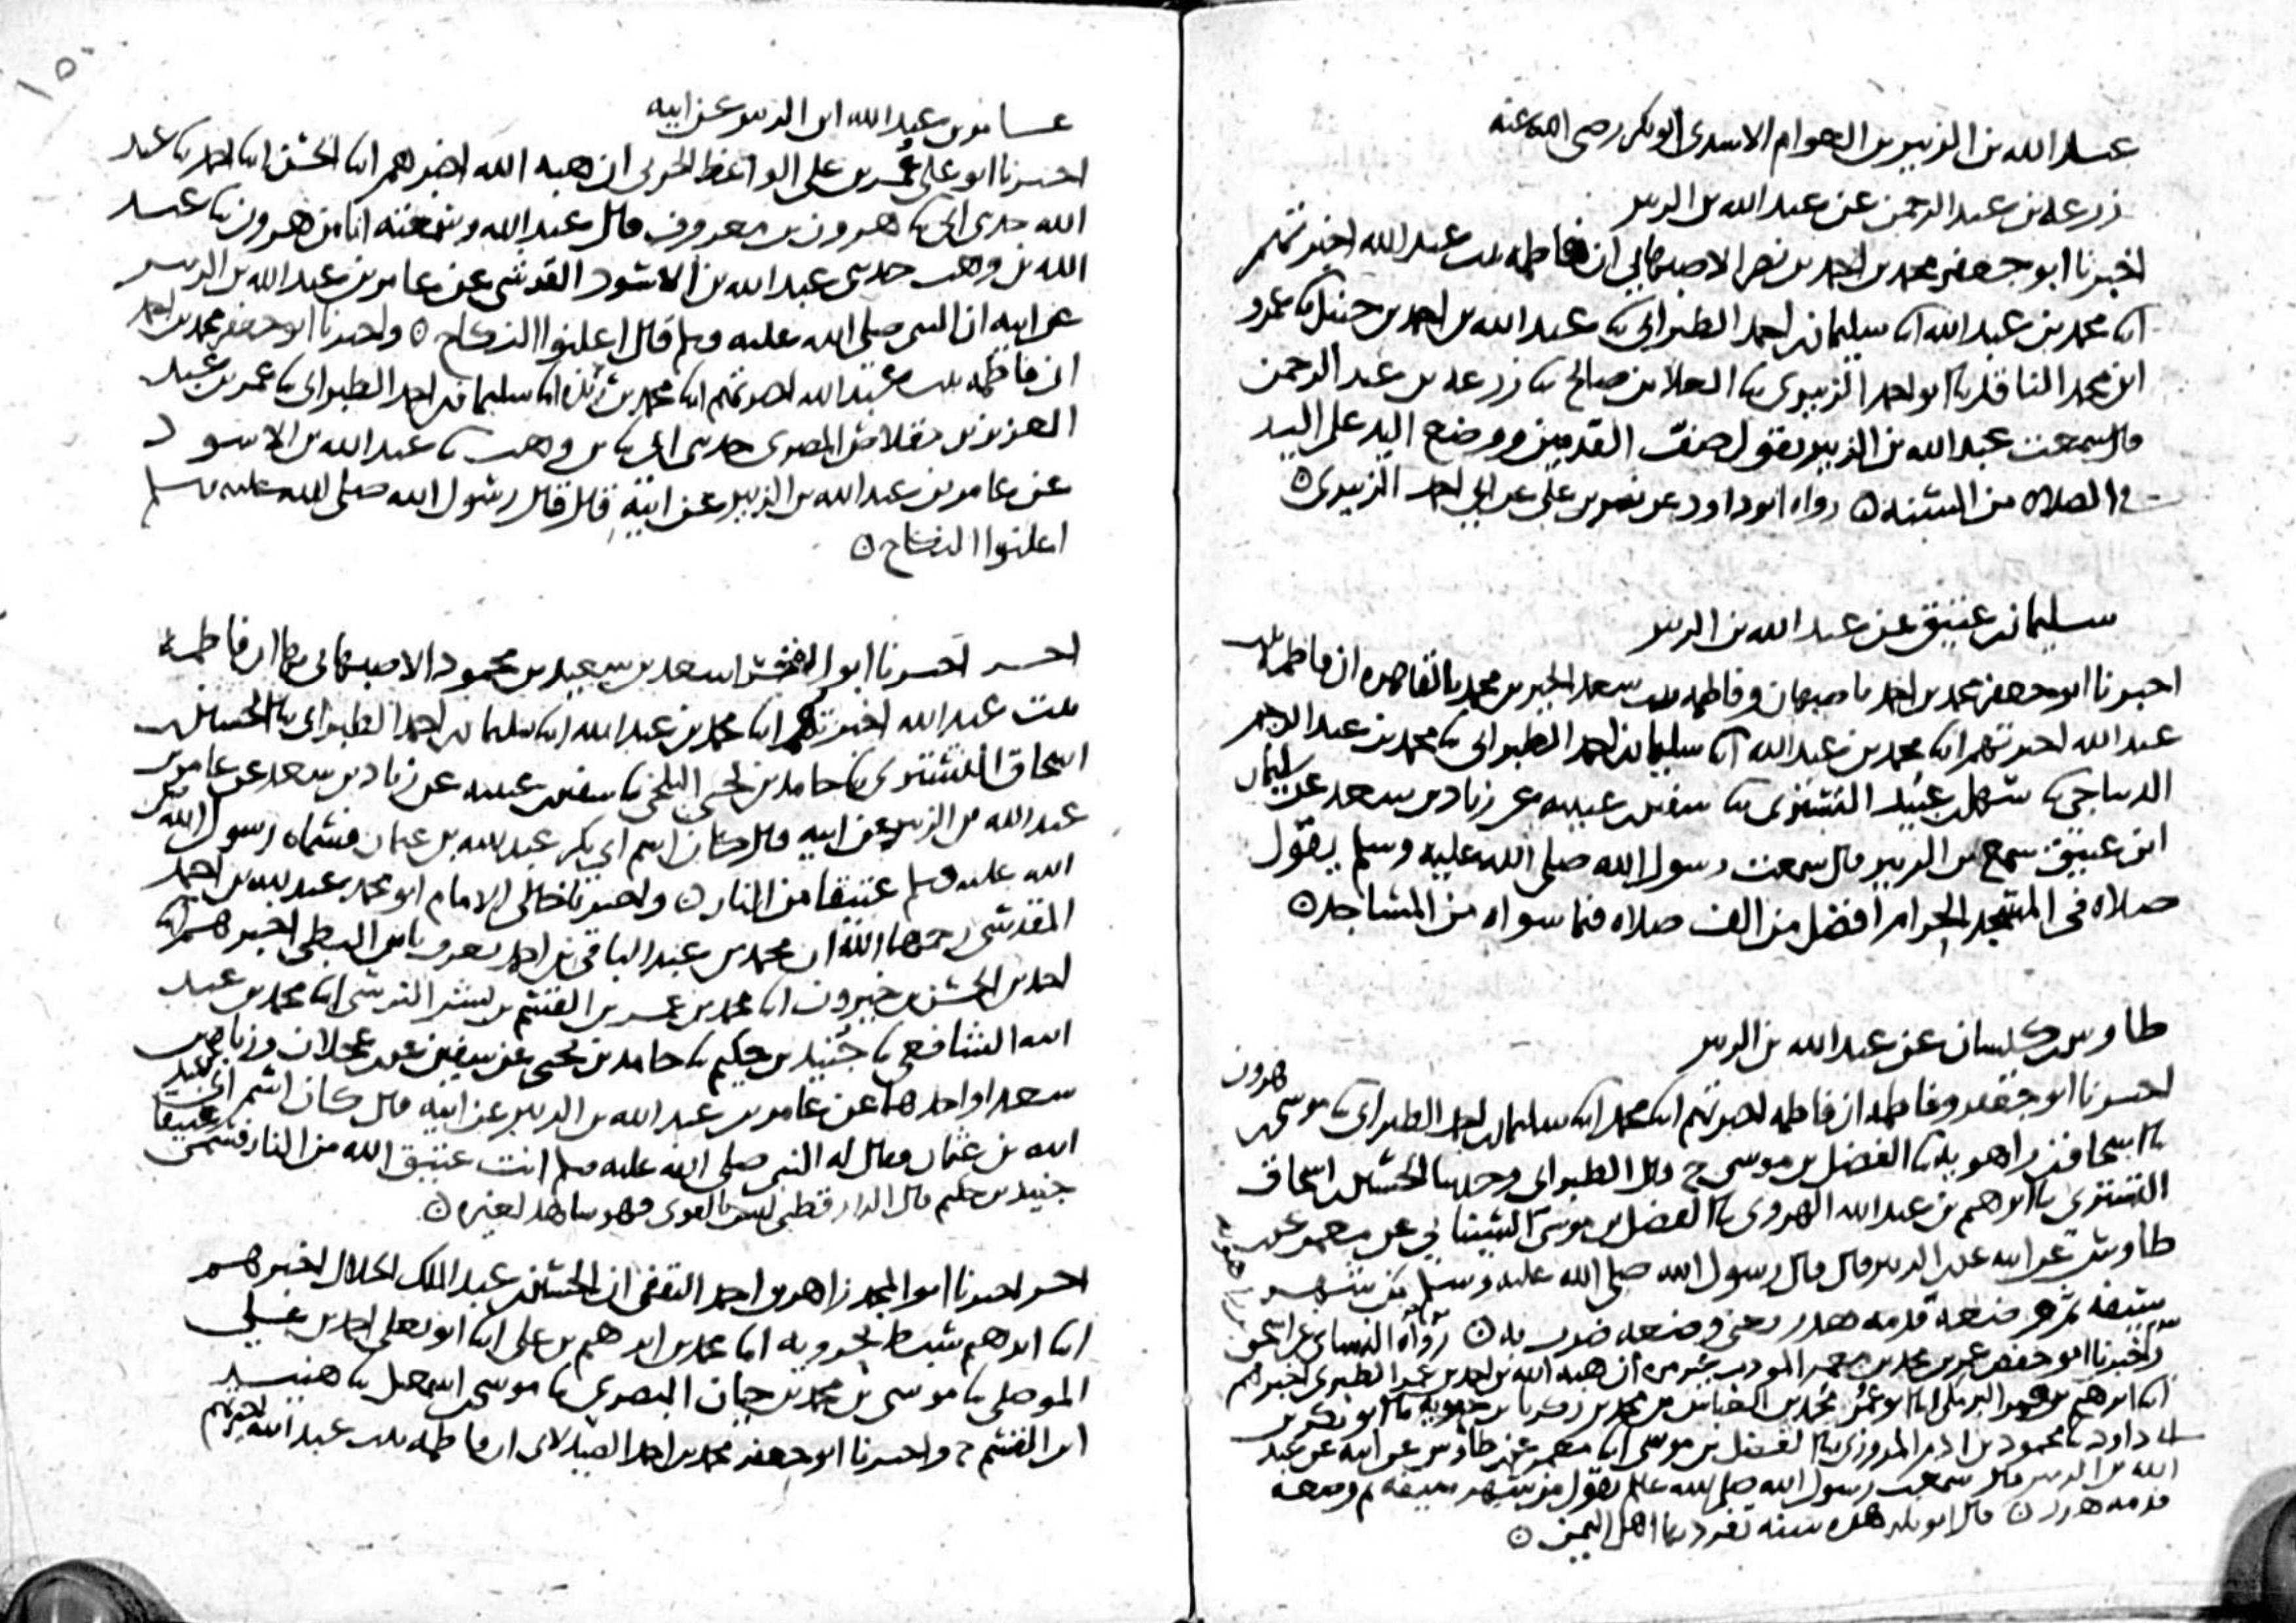 عبد الله بن الزبير بن العوام الاسدي ابو بكر رضي الله عنه
زرعة بن عبد الرحمن عن عبد الله بن الزبير
اخبرنا ابو جعفر محمد بن احمد بن نصر الاصبهاني ان فاطمه بنت عبد الله اخبرتهم
ابنا محمد بن عبد الله ابنا سليمان بن احمد الطبراني ثنا عبد الله بن احمد بن حنبل ثنا عمرو
ابن محمد الناقد ثنا ابو احمد الزبيري ثنا العلا بن صالح ثنا زرعه بن عبد الرحمن
قال سمعت عبد الله بن الزبير يقول صف القدمين ووضع اليد على اليد
في الصلاه من السنه ٥ رواه ابو داود عن نصر بن علي عن ابي احمد الزبيري ٥
سليمان بن عتيق عن عبد الله بن الزبير
اخبرنا ابو جعفر محمد بن احمد باصبهان وفاطمه بنت سعد الخير بن محمد بالقاهره ان فاطمه بنت
عبد الله اخبرتهم ابنا محمد بن عبد الله ابنا سليمان بن احمد الطبراني ثنا محمد بن عبد الرحيم
الديباجي ثنا سهل بن عبيد التستري ثنا سفين بن عيينه عن زياد بن سعد عن سليمان
ابن عتيق سمع بن الزبير قال سمعت رسول الله صلى الله عليه وسلم يقول
صلاه في المسجد الحرام افضل من الف صلاه فيما سواه من المساجد ٥
طاوس بن كيسان عن عبد الله بن الزبير
اخبرنا ابو جعفر وفاطمه ان فاطمه اخبرتهم ابنا محمد ابنا سليمان بن احمد الطبراني ثنا موسى بن هرون
ثنا اسحاق بن راهويه ثنا الفضل بن موسى ح قال الطبراني وحدثنا الحسين بن اسحاق
التستري ثنا ابراهيم بن عبد الله الهروي ثنا الفضل بن موسى السيناني عن معمر عن بن
طاوس عن ابيه عن بن الزبير قال قال رسول الله صلى الله عليه وسلم من شهر
سيفه ثم وضعه فدمه هدر يعني وضعه ضرب به ٥ رواه النسائي عن اسحق
واخبرنا ابو حفص عمر بن محمد بن معمر المودب ان هبه الله بن احمد بن عمر الطبري اخبرهم
ابنا ابرهيم بن عمر البرمكي ابنا ابو عمر محمد بن العباس بن محمد بن زكريا بن حيويه ثنا ابو بكر بن
ابي داود ثنا محمود بن ادم المروزي ثنا الفضل بن موسى ابنا معمر عن بن طاوس عن ابيه عن عبد
الله بن الزبير قال سمعت رسول الله صلى الله عليه يقول من شهر سيفه ثم وضعه
فدمه هدر ٥ قال ابو بكر هذه سنه تفرد بها اهل اليمن ٥
١٥٠
عامر بن عبد الله ابن الزبير عن ابيه
اخبرنا ابو علي عمر بن علي الواعظ الحربي ان هبه الله اخبرهم ابنا الحسن ابنا احمد ثنا عبد
الله حدثني ابي ثنا هرون بن معروف قال عبد الله وسمعته انا من هرون ثنا عبد
الله بن وهب حدثني عبد الله بن الاسود القرشي عن عامر بن عبد الله بن الزبير
عن ابيه ان النبي صلى الله عليه وسلم قال اعلنوا النكاح ٥ واخبرنا ابو جعفر محمد بن احمد
ان فاطمه بنت عبد الله اخبرتهم ابنا محمد بن ريذه ابنا سليمان بن احمد الطبراني ثنا عمر بن عبد
العزيز بن مقلاص المصري حدثني ابي ثنا بن وهب ثنا عبد الله بن الاسود
عن عامر بن عبد الله بن الزبير عن ابيه قال قال رسول الله صلى الله عليه وسلم
اعلنوا النكاح ٥
اخر اخبرنا ابو الفخر اسعد بن سعيد بن محمود الاصبهاني بها ان فاطمه
بنت عبد الله اخبرتهم ابنا محمد بن عبد الله ابنا سليمان بن احمد الطبراني ثنا الحسين بن
اسحاق التستري ثنا حامد بن يحيى البلخي ثنا سفين بن عيينه عن زياد بن سعد عن عامر بن
عبد الله بن الزبير عن ابيه قال كان اسم ابي بكر عبد الله بن عثمان فسماه رسول الله صلى
الله عليه وسلم عتيقا من النار ٥ واخبرنا خالي الامام ابو محمد عبد الله بن احمد
المقدسي رحمه الله ان محمد بن عبد الباقي بن احمد يعرف بابن البطي اخبرهم ابنا
احمد بن الحسن بن خيرون ابنا محمد بن عمر بن القسم بن بشر النرسي ابنا محمد بن عبد
الله الشافعي ثنا جنيد بن حكيم ثنا حامد بن يحيى عن سفين عن بن عجلان وزياد بن
سعد او احدهما عن عامر بن عبد الله بن الزبير عن ابيه قال كان اسم ابي بكر عبد
الله بن عثمان فقال له النبي صلى الله عليه وسلم انت عتيق الله من النار فسمي عتيقا
جنيد بن حكيم قال الدارقطني ليس بالقوي فهو شاهد لغيره ٥
اخر اخبرنا ابو المجد زاهر بن احمد الثقفي ان الحسين بن عبد الملك الخلال اخبرهم
ابنا ابرهيم سبط بحرويه ابنا محمد بن ابرهيم بن علي ابنا ابو يعلى احمد بن علي
الموصلي ثنا موسى بن محمد بن حيان البصري ثنا موسى بن اسمعيل ثنا هنيد
ابن القسم ح واخبرنا ابو جعفر محمد بن احمد الصيدلاني ان فاطمه بنت عبد الله اخبرتهم